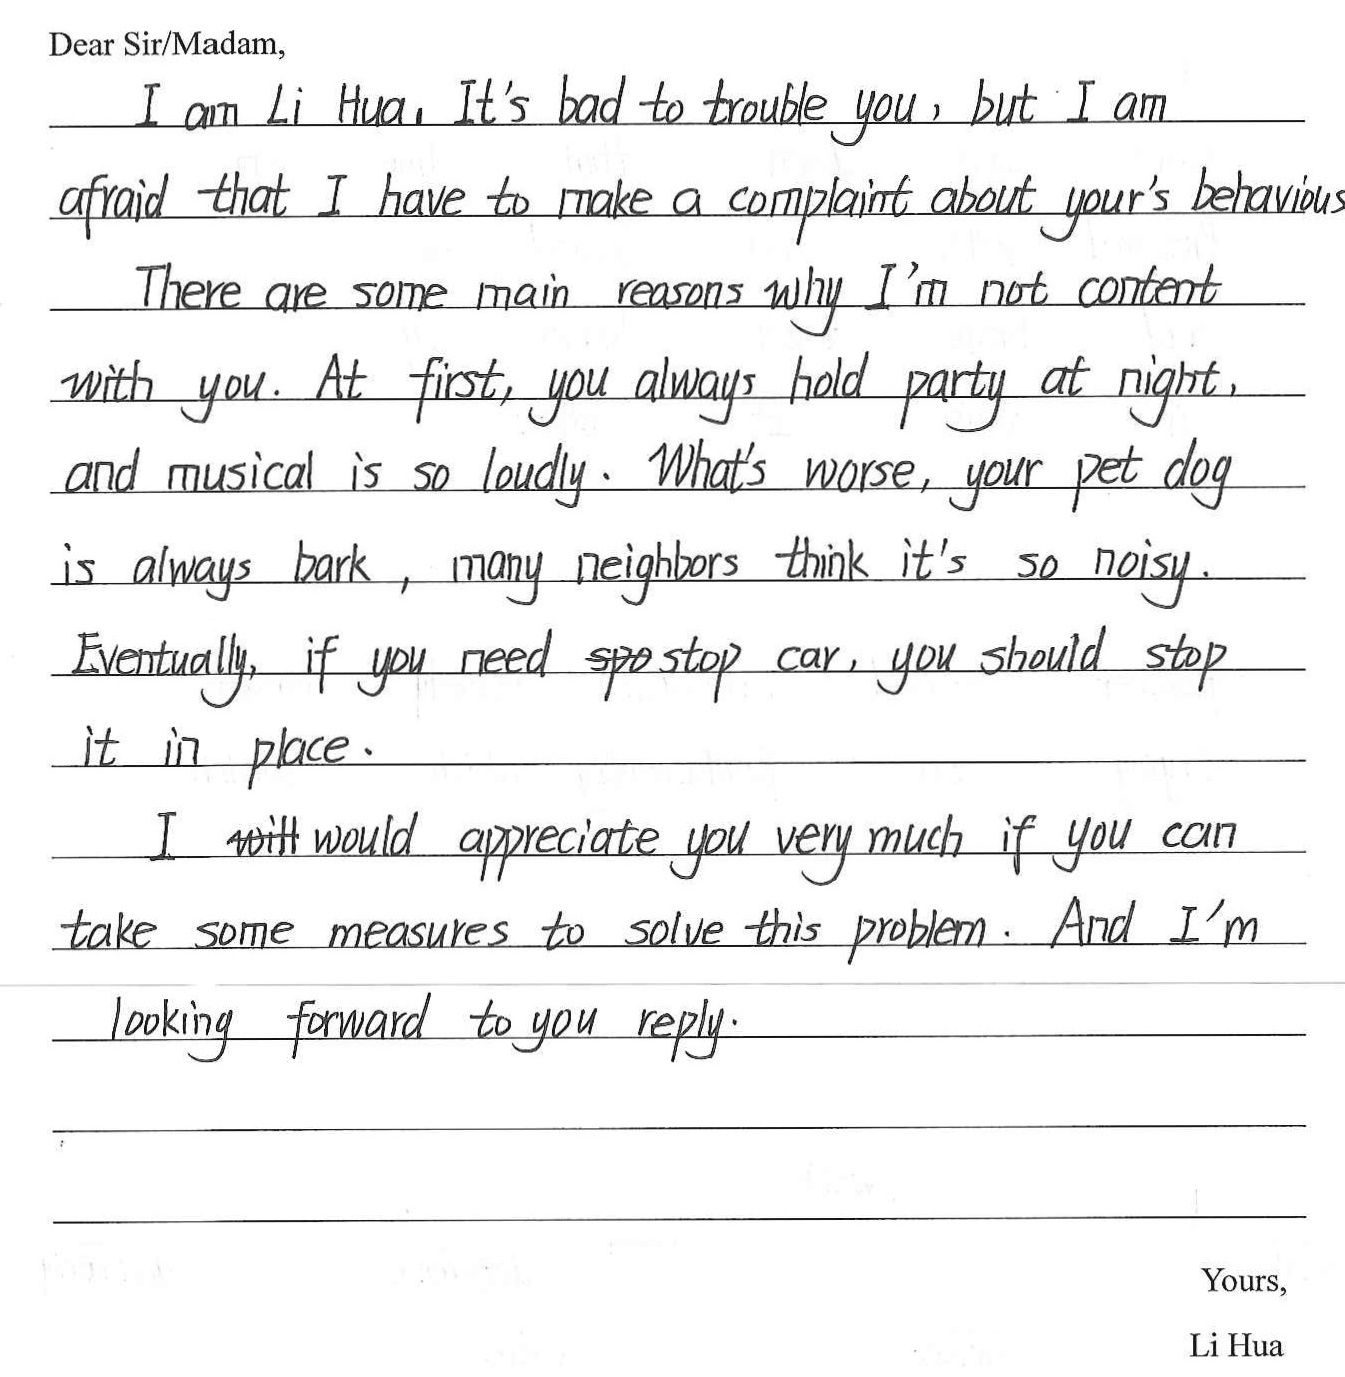 Dear Sir/Madam,
I am Li Hua. It's bad to trouble you, but I am
afraid that I have to make a complaint about your's behavious
There are some main reasons why I'm not content
with you. At first, you always hold party at night,
and musical is so loudly. What's worse, your pet dog
is always bark, many neighbors think it's so noisy.
Eventually, if you need spo stop car, you should stop
it in place.
I will would appreciate you very much if you can
take some measures to solve this problem. And I'm
looking forward to you reply.
Yours,
Li Hua